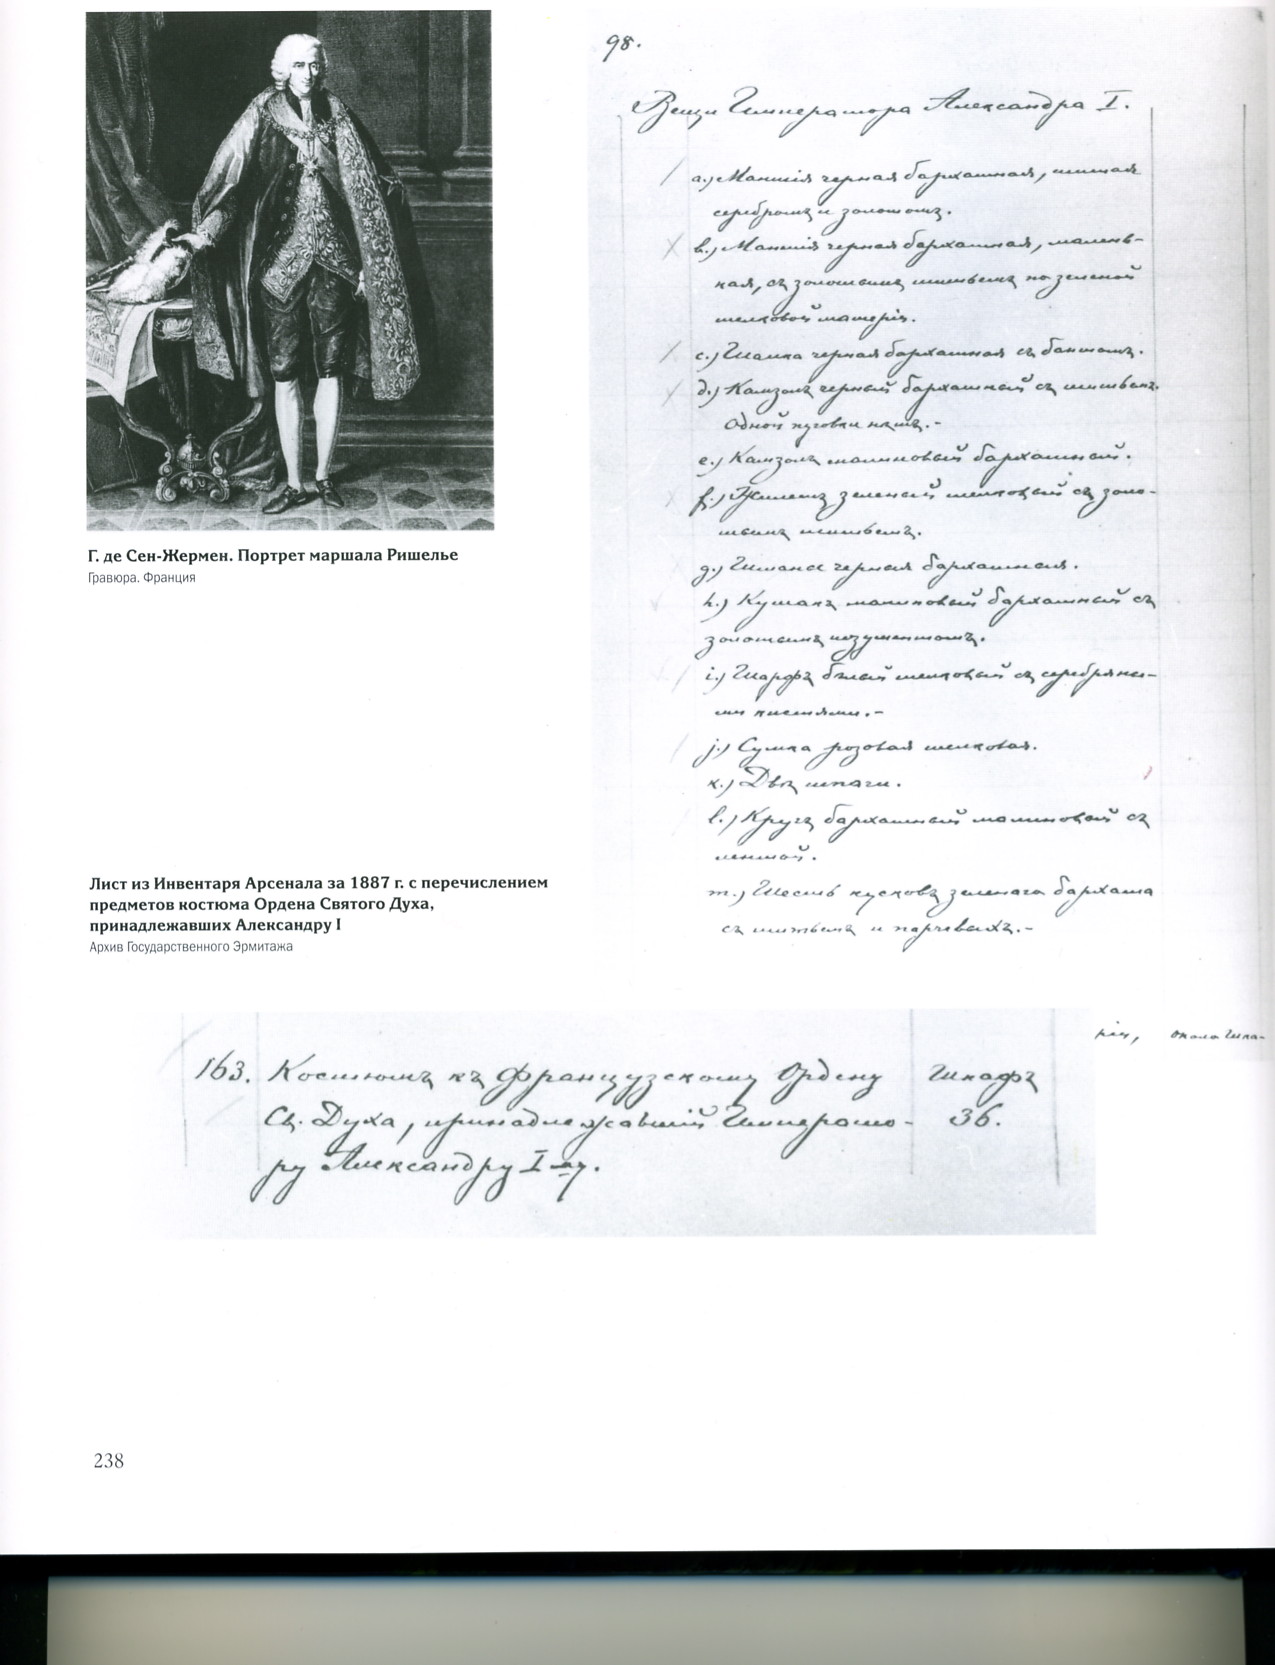 Г. де Сен-Жермен. Портрет маршала Ришелье
Гравюра. Франция
Лист из Инвентаря Арсенала за 1887 г. с перечислением
предметов костюма Ордена Святого Духа,
принадлежавших Александру I
Архив Государственного Эрмитажа
98.
Вещи Императора Александра I.
a.) Мантія черная бархатная, шитая
серебромъ и золотомъ.
b.) Мантія черная бархатная, малень-
кая, съ золотымъ шитьемъ по зеленой
шелковой матеріи.
c.) Шапка черная бархатная съ бантомъ.
d.) Камзолъ черный бархатный съ шитьемъ.
Одной пуговки нѣтъ.-
e.) Камзолъ малиновый бархатный.
f.) Жилетъ зеленый шелковый съ золо-
тымъ шитьемъ.
g.) Штаны черные бархатные.
h.) Кушакъ малиновый бархатный съ
золотымъ позументомъ.
i.) Шарфъ бѣлый шелковый съ серебряны-
ми кистями.-
j.) Сумка розовая шелковая.
k.) Двѣ шпаги.
l.) Кругъ бархатный малиновый съ
лентой.
m.) Шесть кусковъ зеленаго бархата
съ шитьемъ и парчевыхъ.-
ріи, около Шка-
163. Костюмъ къ Французскому Ордену Шкафъ
Св. Духа, принадлежавшій Императо- 36.
ру Александру I-му.
238